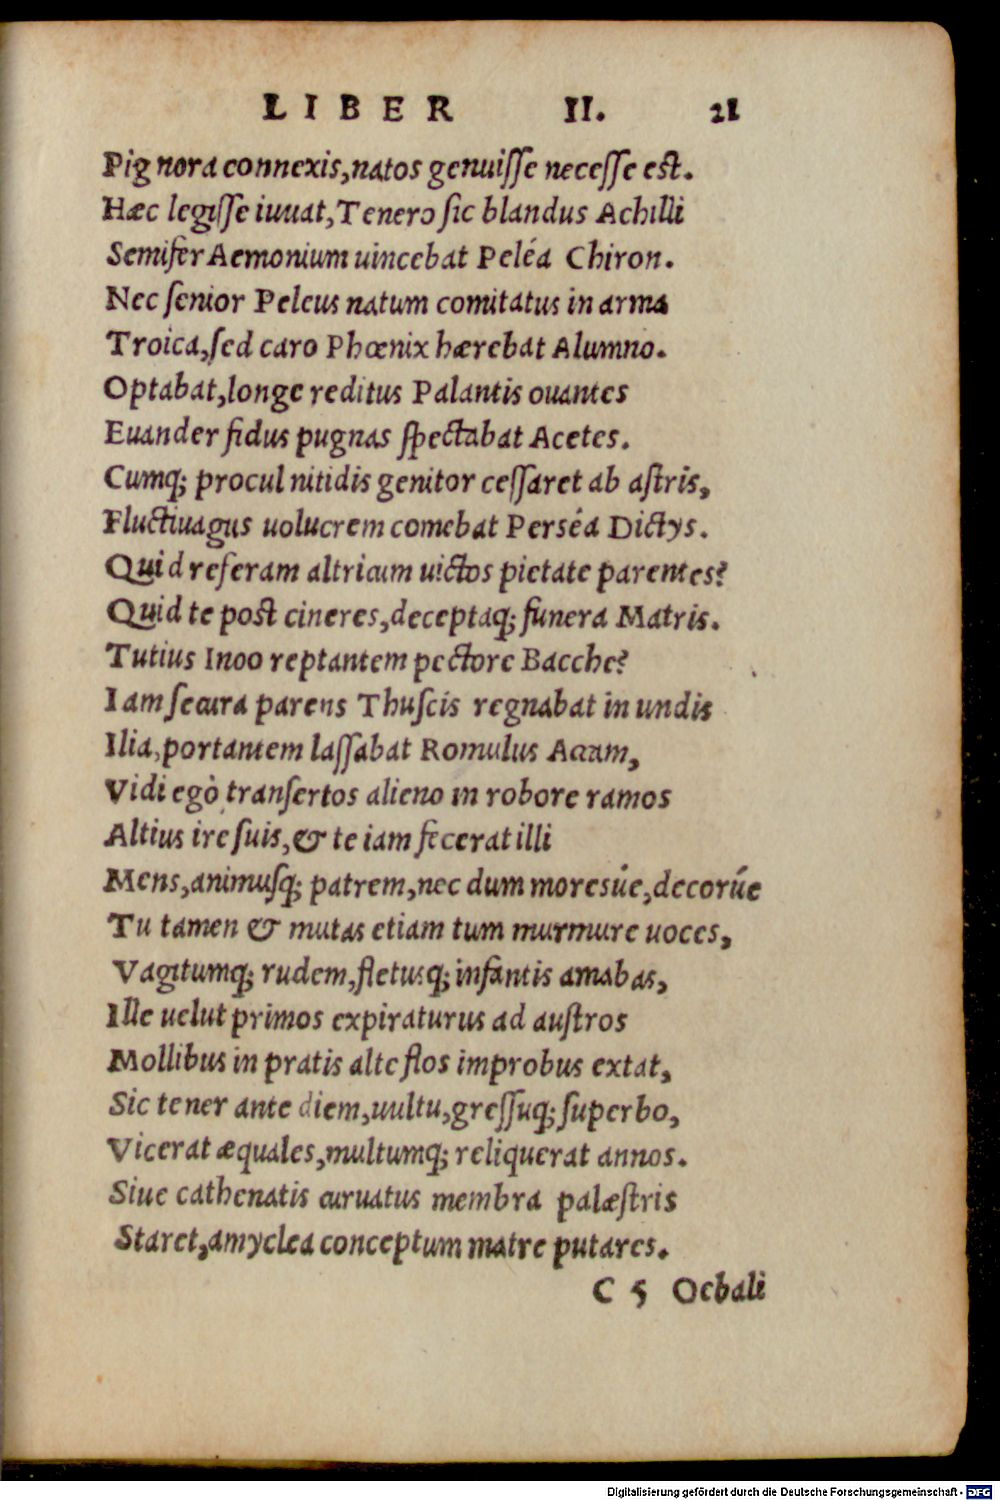 LIBER II. 21
Pignora connexis, natos genuisse necesse est.
Hæc legisse iuuat, Tenero sic blandus Achilli
Semifer Aemonium uincebat Peléa Chiron.
Nec senior Peleus natum comitatus in arma
Troica, sed caro Phœnix hærebat Alumno.
Optabat, longe reditus Palantis ouantes
Euander fidus pugnas spectabat Acetes.
Cumq; procul nitidis genitor cessaret ab astris,
Fluctiuagus uolucrem comebat Perséa Dictys.
Quid referam altricum uictos pietate parentes?
Quid te post cineres, deceptaq; funera Matris.
Tutius Inoo reptantem pectore Bacche?
Iam secura parens Thuscis regnabat in undis
Ilia, portantem lassabat Romulus Accam,
Vidi egò transertos alieno in robore ramos
Altius ire suis, & te iam fecerat illi
Mens, animusq; patrem, nec dum moresúe, decorúe
Tu tamen & mutas etiam tum murmure uoces,
Vagitumq; rudem, fletusq; infantis amabas,
Ille uelut primos expiraturus ad austros
Mollibus in pratis alte flos improbus extat,
Sic tener ante diem, uultu, gressuq; superbo,
Vicerat æquales, multumq; reliquerat annos.
Siue cathenatis curuatus membra palæstris
Staret, amyclea conceptum matre putares.
C 5 Oebali
Digitalisierung gefördert durch die Deutsche Forschungsgemeinschaft - DFG